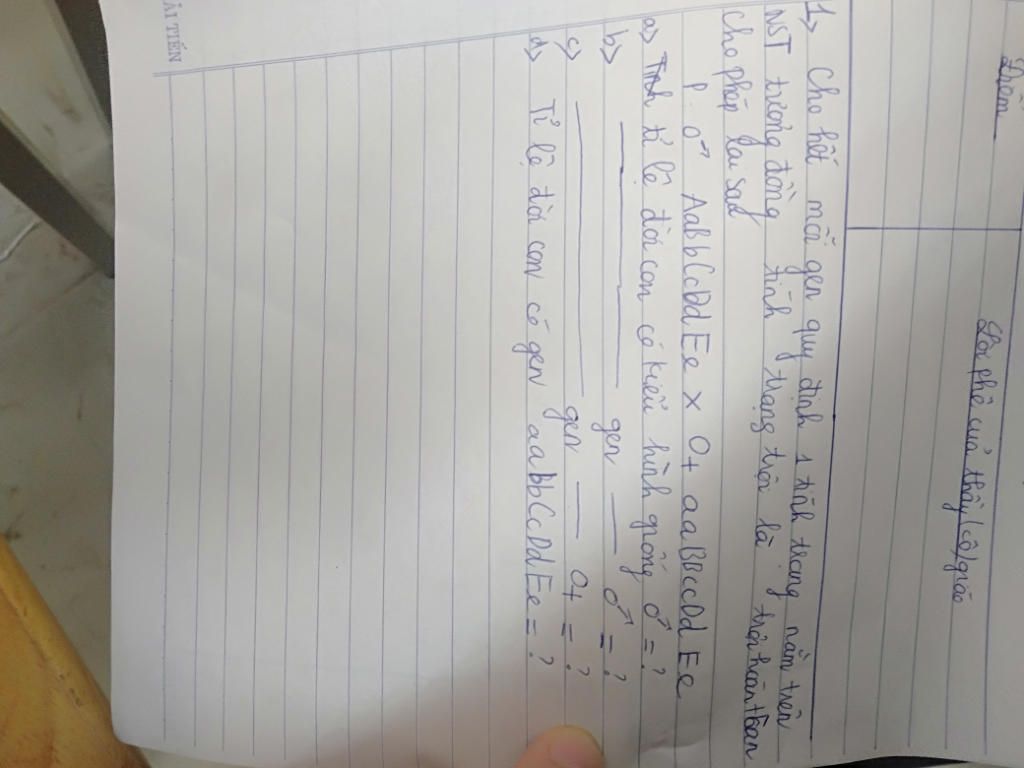 Điểm
Lời phê của thầy (cô) giáo
1> Cho biết mỗi gen quy định 1 tính trạng nằm trên
NST tương đồng tính trạng trội là trội hoàn toàn
Cho phép lai sau
P ♂ AabbCcDdEe × ♀ aaBbccDdEe
a> Tính tỉ lệ đời con có kiểu hình giống ♂ = ?
b> ——————— gen —— ♂ = ?
c> ——————— gen —— ♀ = ?
d> Tỉ lệ đời con có gen aaBbCcDdEe = ?
ẢI TIẾN